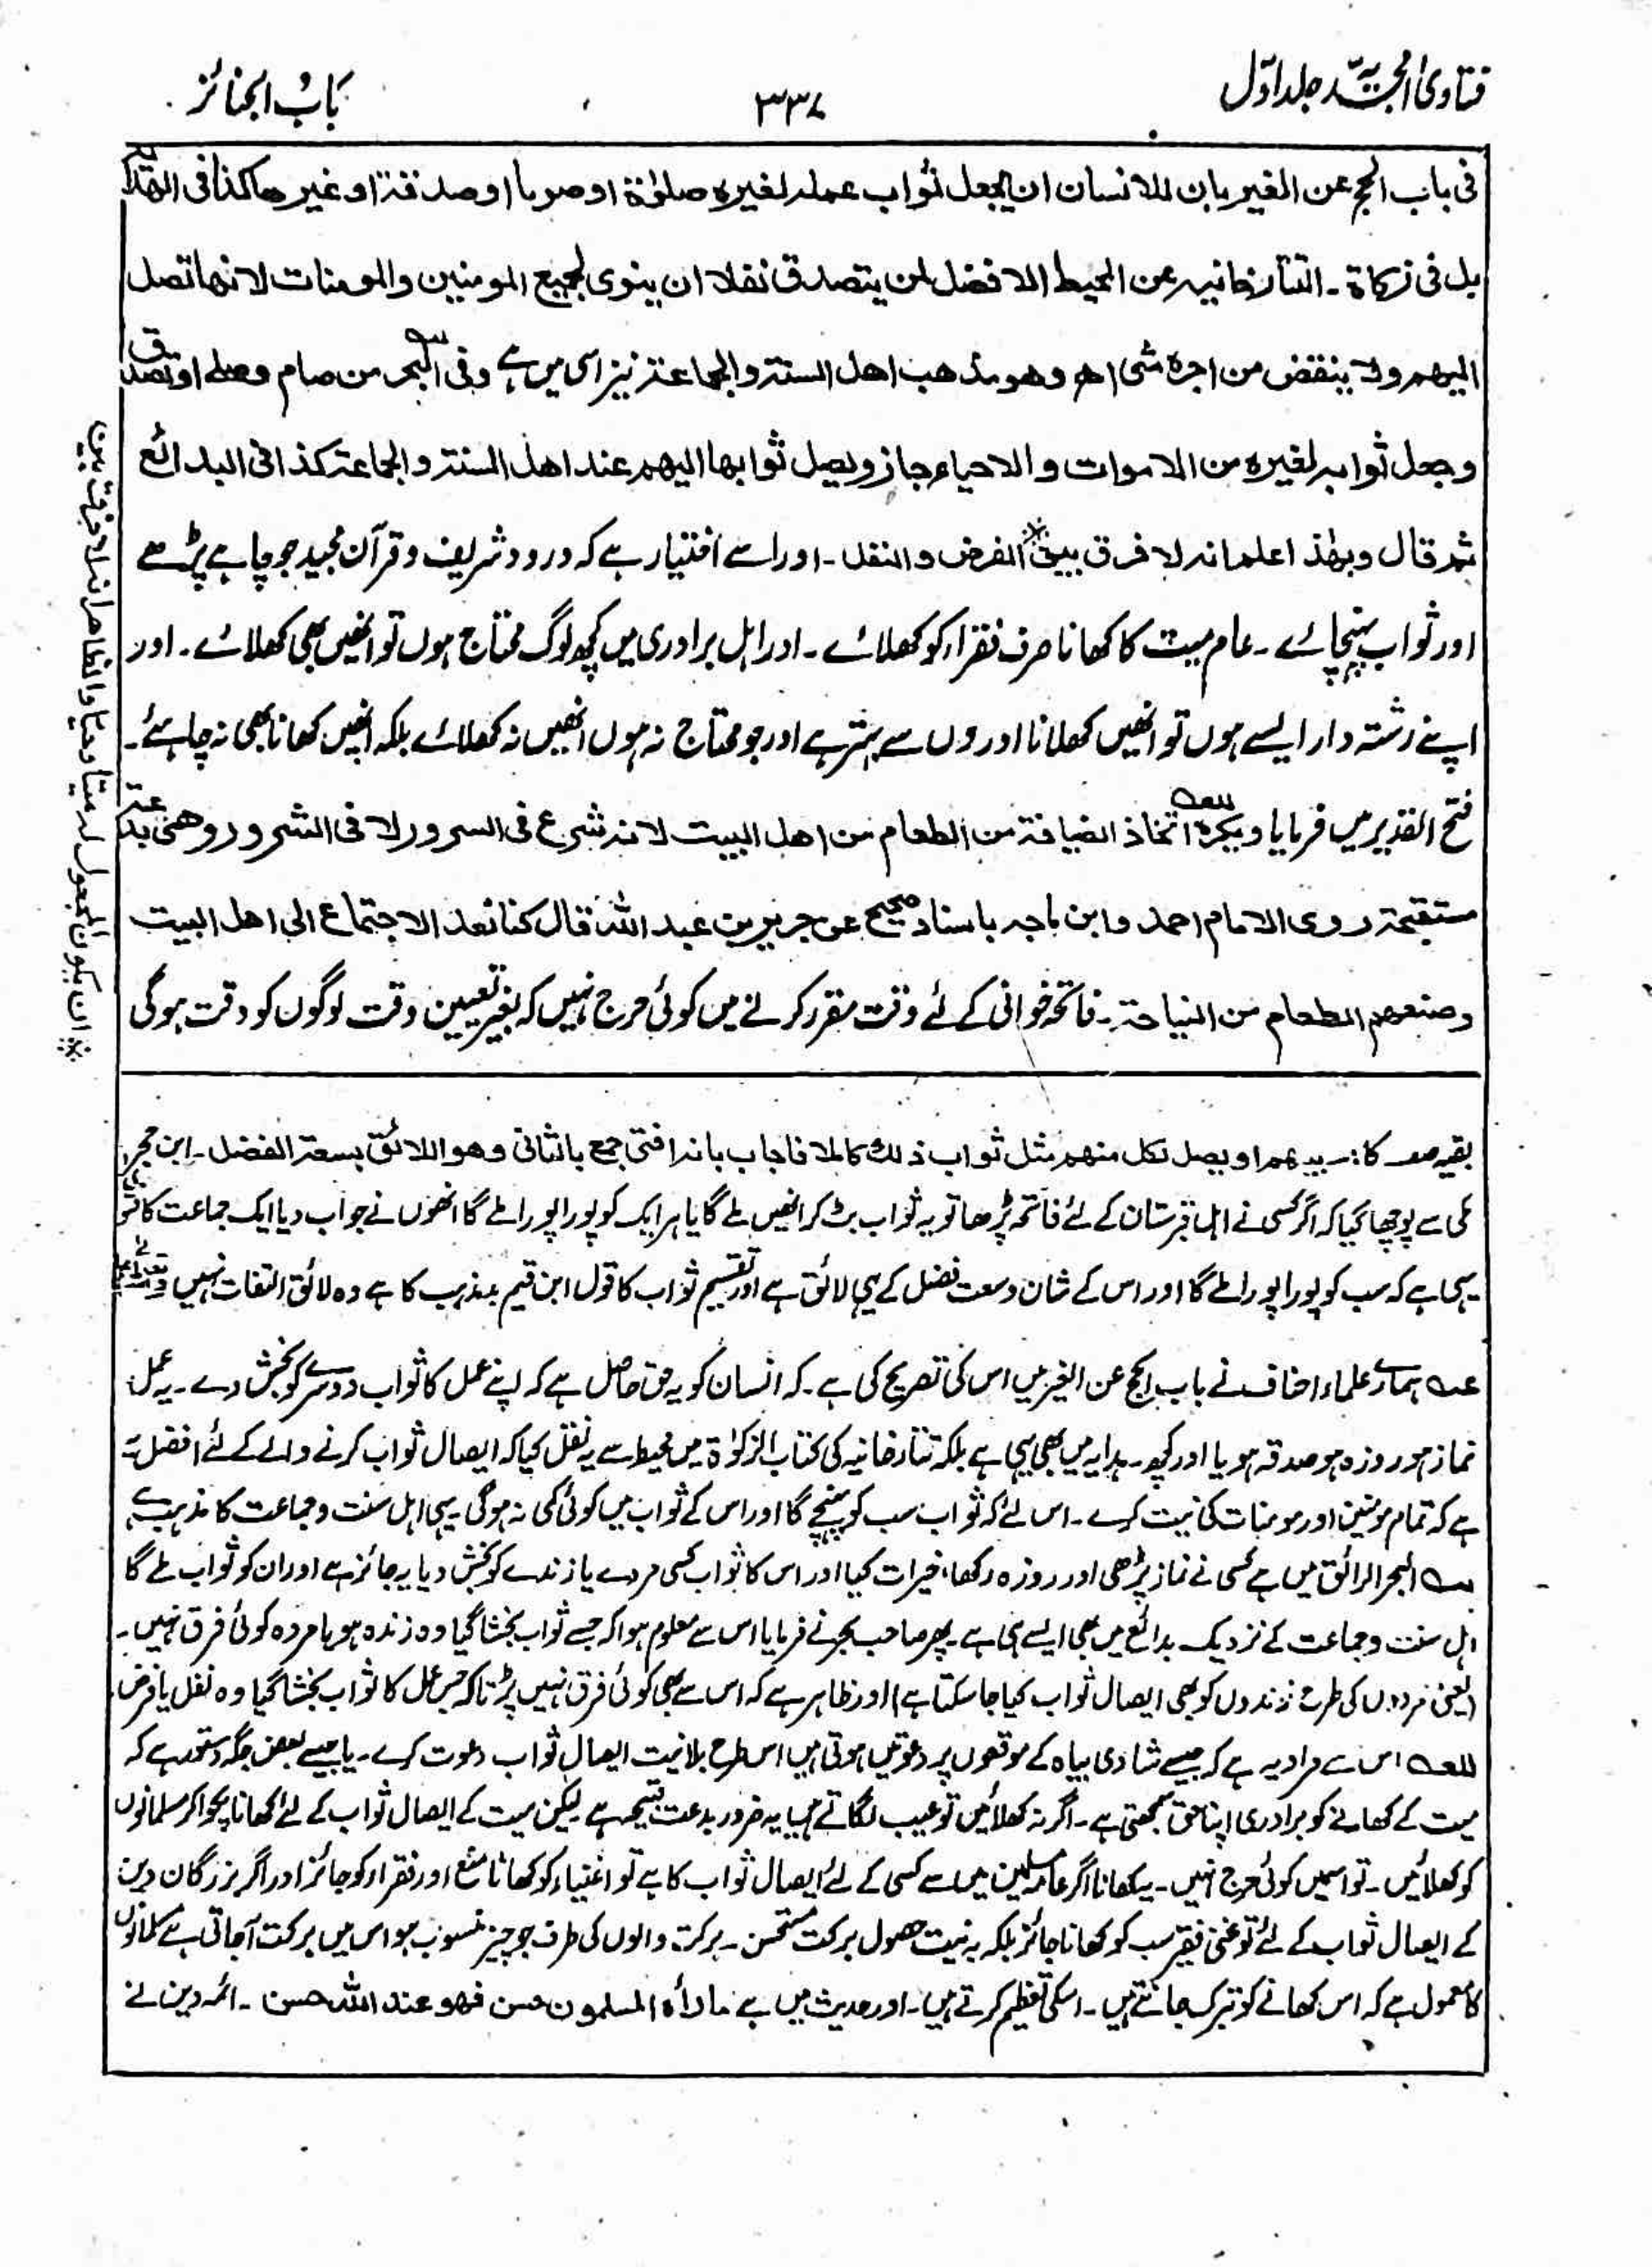 فتاویٰ امجدیہ جلد اوّل
۳۳۷
بابُ الجنائز
فی باب الحج عن الغیر بان للانسان ان یجعل ثواب عملہ لغیرہ صلوٰۃ او صوما او صدقۃ او غیرھا کذا فی الھدایۃ
بل فی زکاۃ ۔ التتارخانیہ عن المحیط الافضل لمن یتصدق نفلا ان ینوی لجمیع المومنین والمومنات لانھا تصل
الیھم ولا ینقض من اجرہ شیٔ اھ وھو مذھب اھل السنۃ والجماعۃ نیز اسی میں ہے وفی البحر من صام وصلی او تصدق
وجعل ثوابہ لغیرہ من الاموات والاحیاء جاز ویصل ثوابھا الیھم عند اھل السنۃ والجماعۃ کذا فی البدائع
ثم قال وبھٰذا علم انہ لا فرق بین※ الفرض والنفل ۔ اور اسے اختیار ہے کہ درود شریف و قرآن مجید جو چاہے پڑھے
اور ثواب پہنچائے ۔ عام میت کا کھانا صرف فقراء کو کھلائے ۔ اور اہل برادری میں کچھ لوگ محتاج ہوں تو انھیں بھی کھلائے ۔ اور
اپنے رشتہ دار ایسے ہوں تو انھیں کھلانا اوروں سے بہتر ہے اور جو محتاج نہ ہوں انھیں نہ کھلائے بلکہ انھیں کھانا بھی نہ چاہئے ۔
فتح القدیر میں فرمایا ویکرہ اتخاذ الضیافۃ من الطعام من اھل البیت لانہ شرع فی السرور لا فی الشرور وھی بدعۃ
مستقبحۃ روی الامام احمد وابن ماجہ باسناد صحیح عن جریر بن عبد اللہ قال کنا نعد الاجتماع الی اھل البیت
وصنعھم الطعام من النیاحۃ ۔ فاتحہ خوانی کے لئے وقت مقرر کرنے میں کوئی حرج نہیں کہ بغیر تعیین وقت لوگوں کو دقت ہوگی
※ ان یکون المجعول لہ میتا او حیا والظاھر انہ لا فرق بین
بقیہ صہ کا: ۔ بینھم او یصل لکل منھم مثل ثواب ذلک کاملا فاجاب بانہ افتی جمع بالثانی وھو اللائق بسعۃ الفضل ۔ ابن حجر
مکی سے پوچھا گیا کہ اگر کسی نے اہل قبرستان کے لئے فاتحہ پڑھا تو یہ ثواب بٹ کر انھیں ملے گا یا ہر ایک کو پورا پورا ملے گا انھوں نے جواب دیا ایک جماعت کا فتویٰ
یہی ہے کہ سب کو پورا پورا ملے گا اور اس کے شان وسعت فضل کے یہی لائق ہے اور تقسیم ثواب کا قول ابن قیم بدمذہب کا ہے وہ لائق التفات نہیں
عہ ہمارے علماء احناف نے باب الحج عن الغیر میں اس کی تصریح کی ہے ۔ کہ انسان کو یہ حق حاصل ہے کہ اپنے عمل کا ثواب دوسرے کو بخش دے ۔ یہ عمل
نماز ہو روزہ ہو صدقہ ہو یا اور کچھ ۔ ہدایہ میں بھی یہی ہے بلکہ تتارخانیہ کی کتاب الزکوٰۃ میں محیط سے یہ نقل کیا کہ ایصال ثواب کرنے والے کے لئے افضل یہ
ہے کہ تمام مومنین اور مومنات کی نیت کرے ۔ اس لئے کہ ثواب سب کو پہنچے گا اور اس کے ثواب میں کوئی کمی نہ ہوگی ۔ یہی اہل سنت و جماعت کا مذہب ہے
سہ البحر الرائق میں ہے کسی نے نماز پڑھی اور روزہ رکھا، خیرات کیا اور اس کا ثواب کسی مردے یا زندے کو بخش دیا یہ جائز ہے اور ان کو ثواب ملے گا
اہل سنت و جماعت کے نزدیک بدائع میں بھی ایسے ہی ہے ۔ پھر صاحب بحر نے فرمایا اس سے معلوم ہوا کہ جسے ثواب بخشا گیا وہ زندہ ہو یا مردہ کوئی فرق نہیں ۔
(یعنی مردوں کی طرح زندوں کو بھی ایصال ثواب کیا جا سکتا ہے) اور ظاہر ہے کہ اس سے بھی کوئی فرق نہیں پڑتا کہ جس عمل کا ثواب بخشا گیا وہ نفل یا فرض
للعہ اس سے مراد یہ ہے کہ جیسے شادی بیاہ کے موقعوں پر دعوتیں ہوتی ہیں اس طرح بلانیت ایصال ثواب دعوت کرے ۔ یا جیسے بعض جگہ دستور ہے کہ
میت کے کھانے کو برادری اپنا حق سمجھتی ہے ۔ اگر نہ کھلائیں تو عیب لگاتے ہیں یہ ضرور بدعت قبیحہ ہے لیکن میت کے ایصال ثواب کے لئے کھانا پکوا کر مسلمانوں
کو کھلائیں ۔ تو اسمیں کوئی حرج نہیں ۔ یہ کھانا اگر عامہ مسلمین میں سے کسی کے لئے ایصال ثواب کا ہے تو اغنیاء کو کھانا منع اور فقراء کو جائز اور اگر بزرگان دین
کے ایصال ثواب کے لئے تو غنی فقیر سب کو کھانا جائز بلکہ بہ نیت حصول برکت مستحسن ۔ برکت والوں کی طرف جو چیز منسوب ہو اس میں برکت آجاتی ہے مسلمانوں
کا معمول ہے کہ اس کھانے کو تبرک جانتے ہیں ۔ اسکی تعظیم کرتے ہیں ۔ اور حدیث میں ہے ما راٰہ المسلمون حسن فھو عند اللہ حسن ۔ ائمہ دین نے